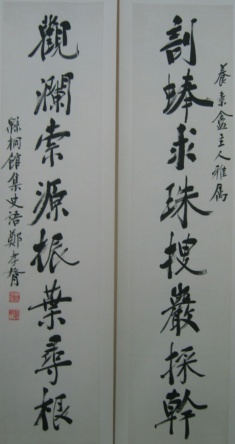 養素盦主人雅属
剖蜯求珠搜巖採幹
觀瀾索源振葉尋根
集史语鄭孝胥